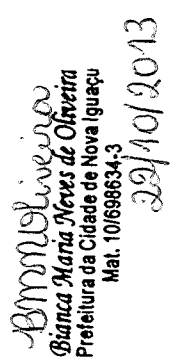 BMNOliveira
Bianca Maria Neves de Oliveira
Prefeitura da Cidade de Nova Iguaçu
Mat. 10/698634-3
29/10/2013